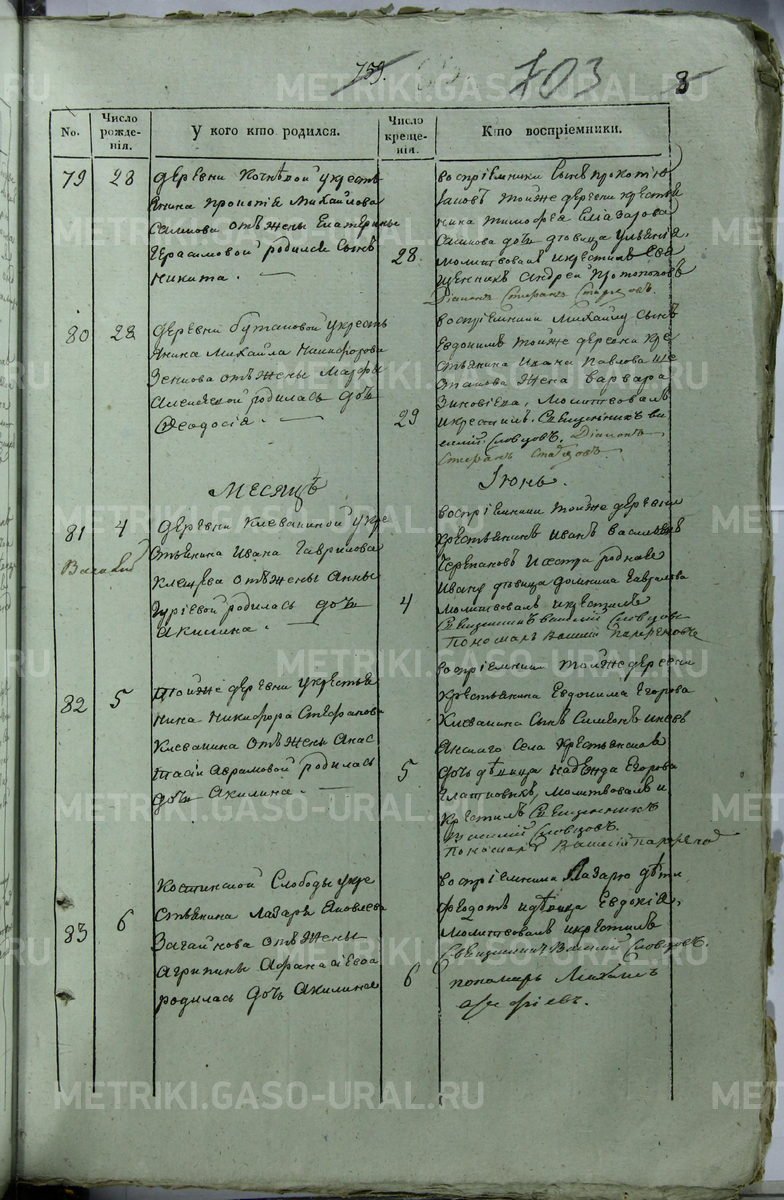 759.
703
8
No.
Число рожде-нія.
У кого кто родился.
Число креще-нія.
Кто воспріемники.
79
28
деревни Кочневой у кресть
янина Прокопія Михайлова
отъ жены Екатерины
Герасимовой родился сынъ
Никита.
28
воспріемники сынъ Прокопію
тойже деревни кресть
нина Тимофея
дочь девица
молитвовалъ и крестилъ Свя
щенникъ Андрей Протопоповъ
Діаконъ Стефанъ
80
28
деревни Бутаковой у кресть
янина Михайла Никифорова
отъ жены Марфы
Алексеевой родилась дочь
Феодосія.
29
воспріемники Михайлу сынъ
Евдокимъ тойже деревни кре
стьянина Ивана Павлова
жена Варвара
Зиновіева, молитвовалъ
и крестилъ Священникъ Ва
силій Словцовъ. Діаконъ
Стефанъ
Месяцъ
Іюнь.
81
4
деревни Клевакиной у кре
стьянина Ивана Гаврилова
отъ жены Анны
Гуріевой родилась дочь
Акилина.
4
воспріемники тойже деревни
крестьянинъ Иванъ Васильевъ
Черепановъ и сестра роднае
Ивану девица Домника Гаврилова
молитвовалъ и крестилъ
Священникъ Василій Словцовъ
Пономарь Василій
82
5
Тойже деревни у кресть
нина Никифора Стефанова
Клевакина отъ жены Анас
тасіи Аврамовой родилась
дочь Акилина.
5
воспріемники тойже деревни
крестьянина Евдокима Егорова
Клевакина сынъ Симеонъ и
села крестьянская
дочь девица Надежда Егорова
молитвовалъ и
крестилъ Священникъ
Василій Словцовъ.
Пономарь Василій
83
6
Слободы у кре
стьянина Лазаря Яковлева
Загайнова отъ жены
Агрипины Афанасіева
родилась дочь Акилина
6
воспріемники Лазарю дети
Федотъ и девица Евдокія,
молитвовалъ и крестилъ
Священникъ Василій Словцовъ.
пономарь Михаилъ
METRIKI.GASO-URAL.RU